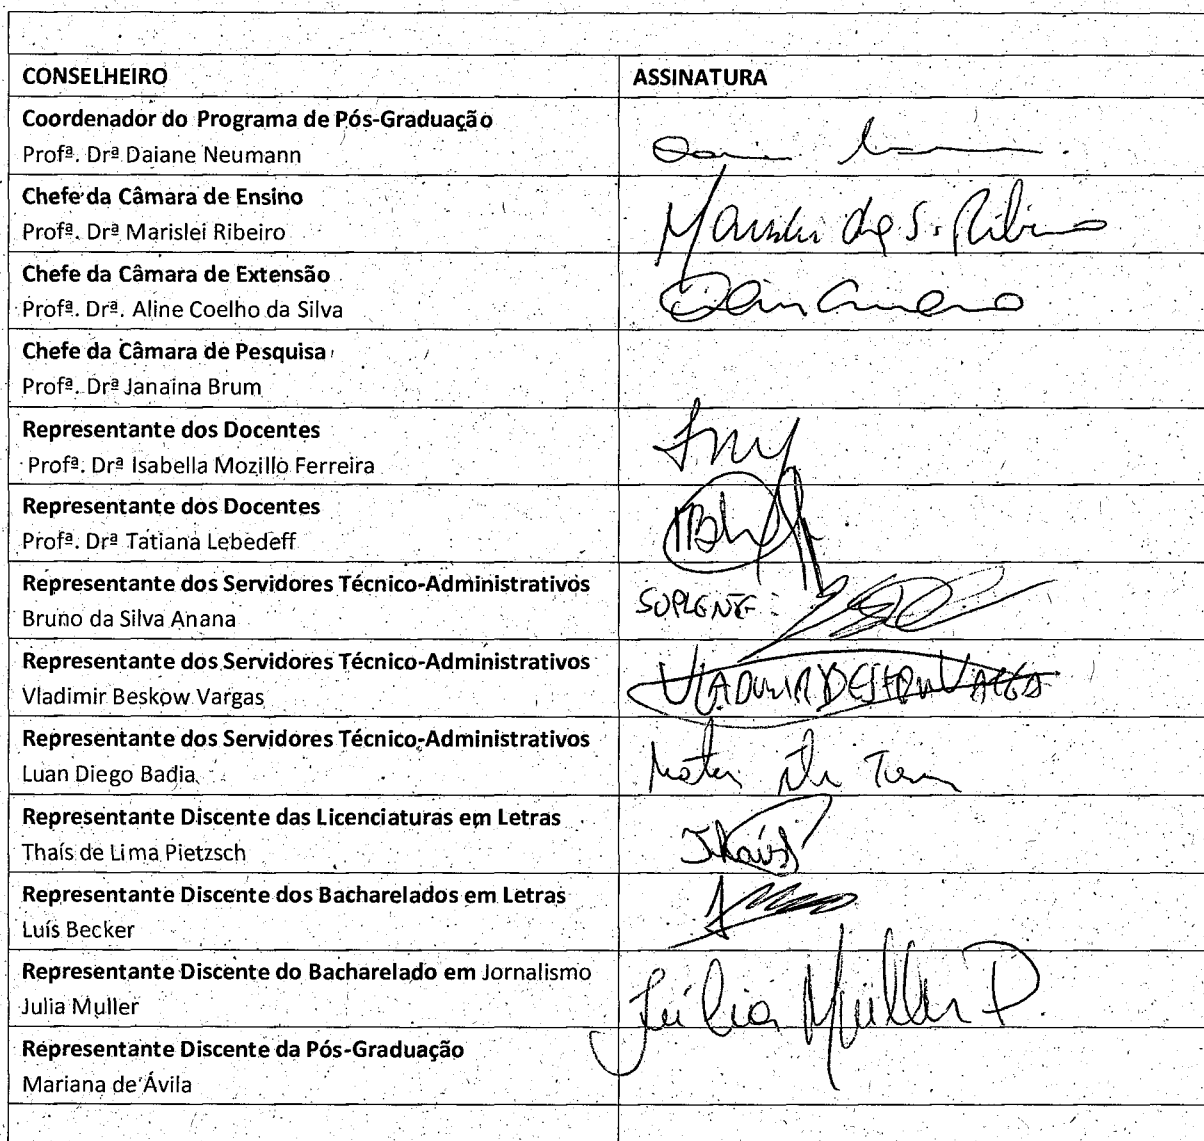 CONSELHEIRO
ASSINATURA
Coordenador do Programa de Pós-Graduação
Profª. Drª Daiane Neumann
Chefe da Câmara de Ensino
Profª. Drª Marislei Ribeiro
Marislei da S. Ribeiro
Chefe da Câmara de Extensão
Profª. Drª. Aline Coelho da Silva
Chefe da Câmara de Pesquisa
Profª. Drª Janaina Brum
Representante dos Docentes
Profª. Drª Isabella Mozillo Ferreira
Representante dos Docentes
Profª. Drª Tatiana Lebedeff
Representante dos Servidores Técnico-Administrativos
Bruno da Silva Anana
SUPLENTE:
Representante dos Servidores Técnico-Administrativos
Vladimir Beskow Vargas
VLADIMIR BESKOW VARGAS
Representante dos Servidores Técnico-Administrativos
Luan Diego Badia
Representante Discente das Licenciaturas em Letras
Thaís de Lima Pietzsch
Thaís
Representante Discente dos Bacharelados em Letras
Luís Becker
Representante Discente do Bacharelado em Jornalismo
Julia Muller
Júlia Müller P.
Representante Discente da Pós-Graduação
Mariana de Ávila